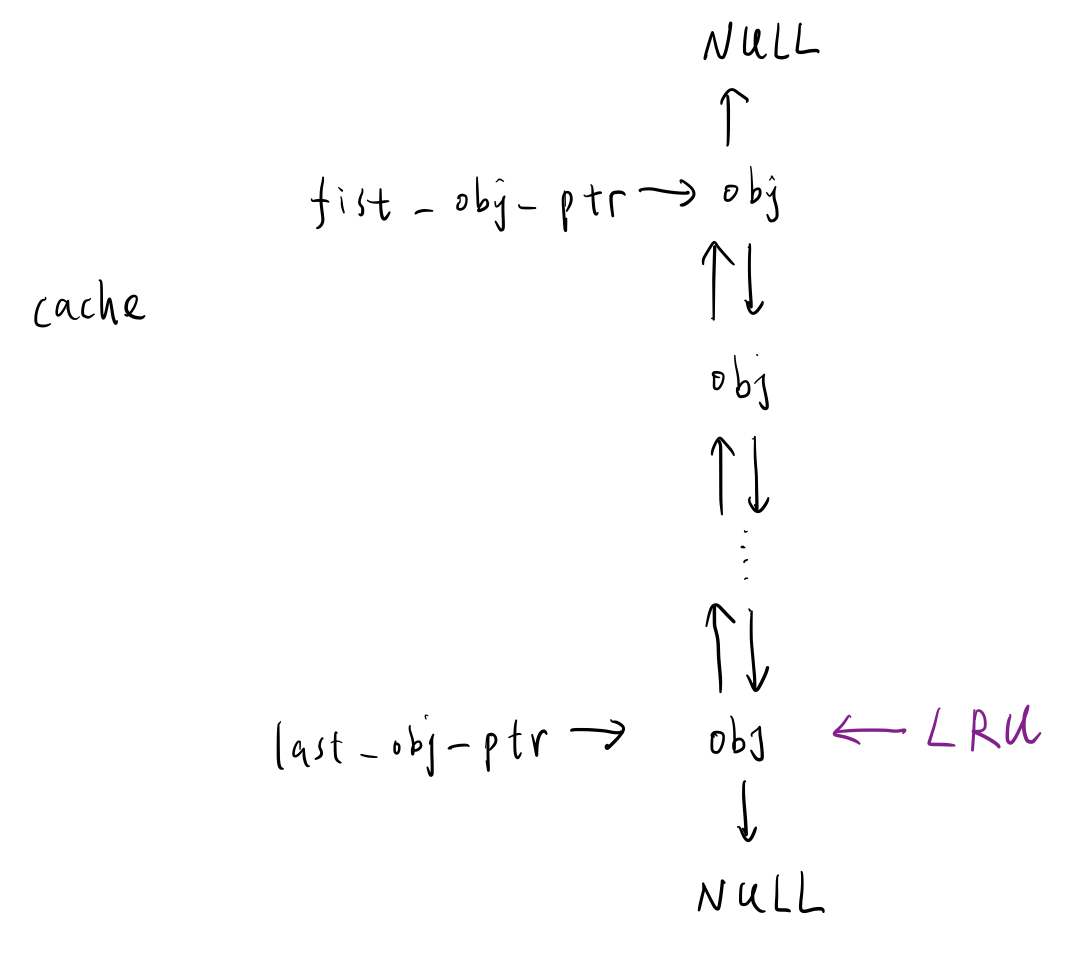 NULL
fist_obj_ptr → obj
cache
obj
last_obj_ptr → obj ← LRU
NULL